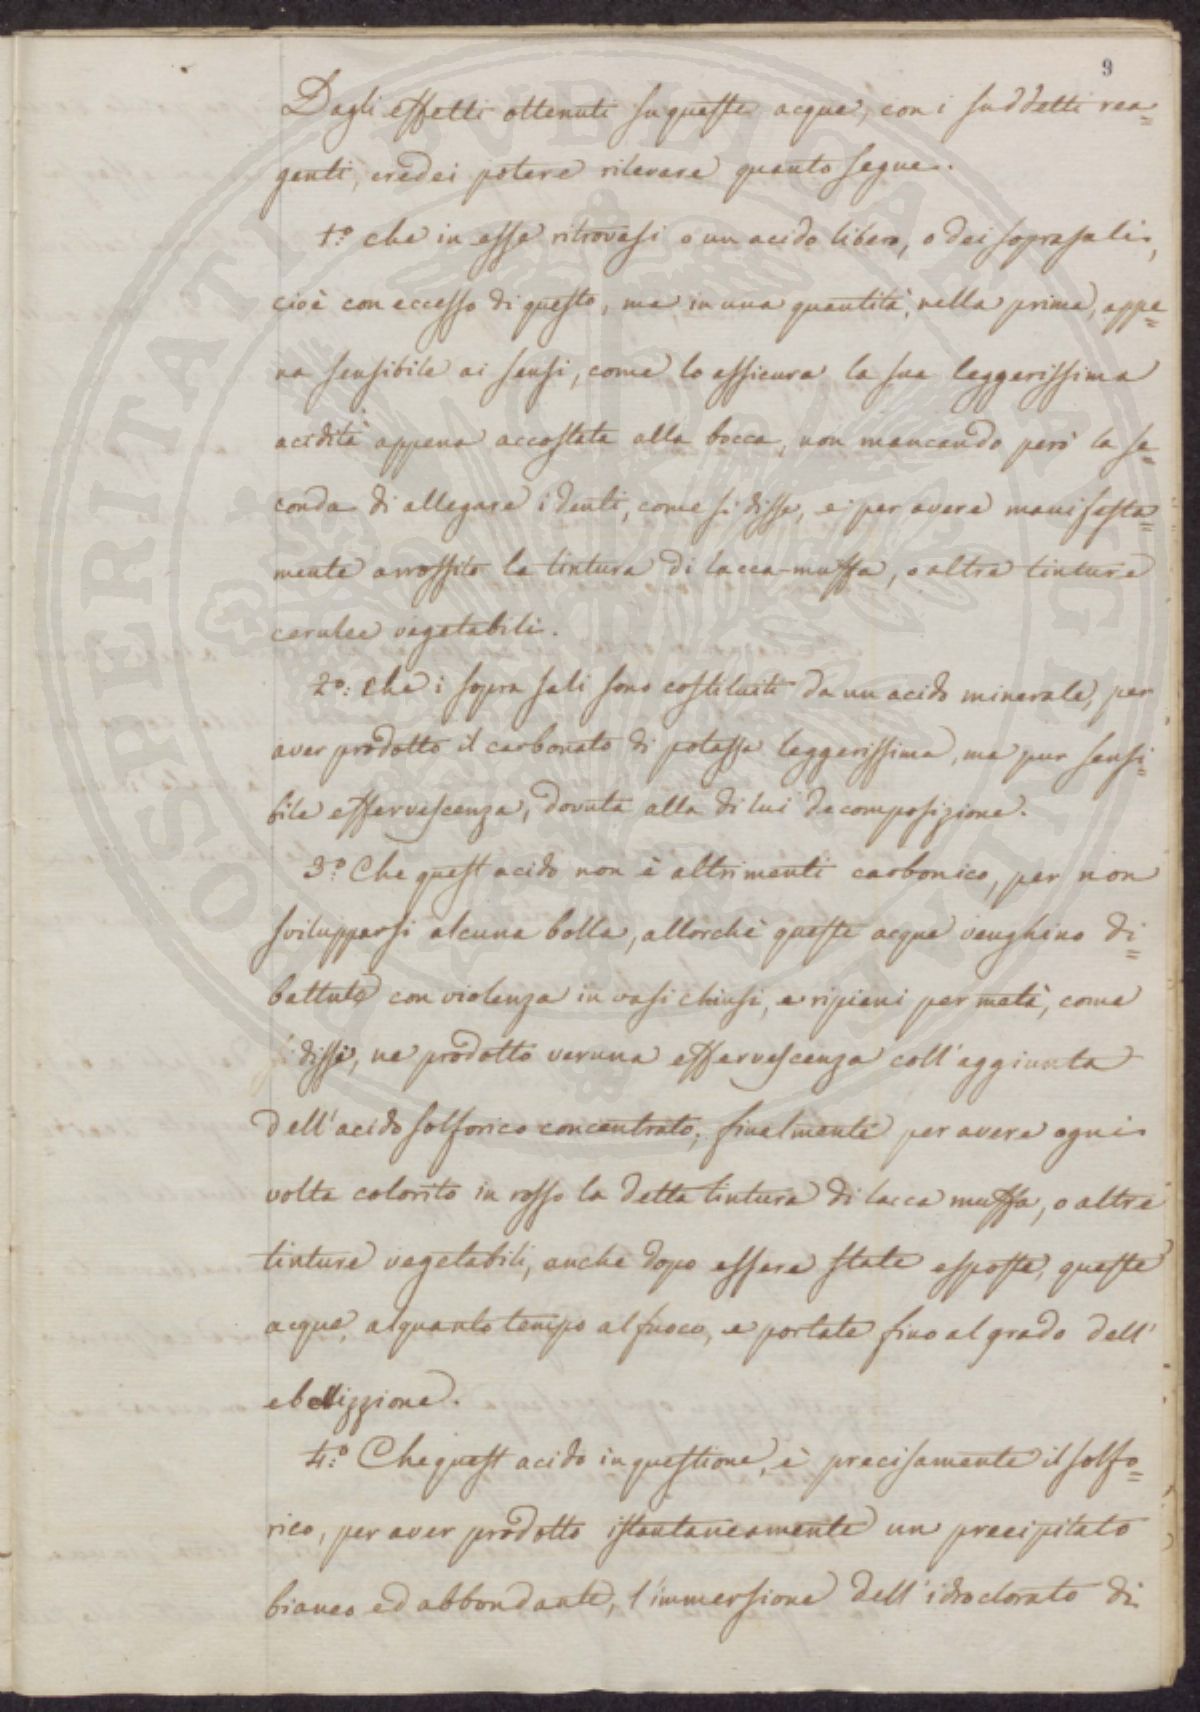 9
Dagli effetti ottenuti su queste acque, con i suddetti rea=
genti, credei potere rilevare quanto segue.
1.° che in esse ritrovasi o un acido libero, o dei soprasali,
cioè con eccesso di questo, ma in una quantità, nella prima, appe=
na sensibile ai sensi, come lo assicura la sua leggerissima
acidità appena accostata alla bocca, non mancando però la se=
conda di allegare i denti, come si disse, e per avere manifesta=
mente arrossito la tintura di lacca-muffa, o altre tinture
cerulee vegetabili.
2°: che i sopra sali sono costituiti da un acido minerale, per
aver prodotto il carbonato di potassa leggerissima, ma pur sensi=
bile effervescenza, dovuta alla di lui decomposizione.
3.° Che quest acido non è altrimenti carbonico, per non
svilupparsi alcuna bolla, allorchè queste acque venghino di=
battute con violenza in vasi chiusi, e ripieni per metà, come
dissi, ne prodotto veruna effervescenza coll'aggiunta
dell'acido solforico concentrato, finalmente per avere ogni
volta colorito in rosso la detta tintura di lacca muffa, o altre
tinture vegetabili, anche dopo essere state esposte, queste
acque, alquanto tempo al fuoco, e portate fino al grado dell'
ebollizzione.
4.° Che quest acido in questione, è precisamente il solfo=
rico, per aver prodotto istantaneamente un precipitato
bianco ed abbondante, l'immersione dell'idroclorato di
PROSPERITATI PVBLICAE AVGENDAE